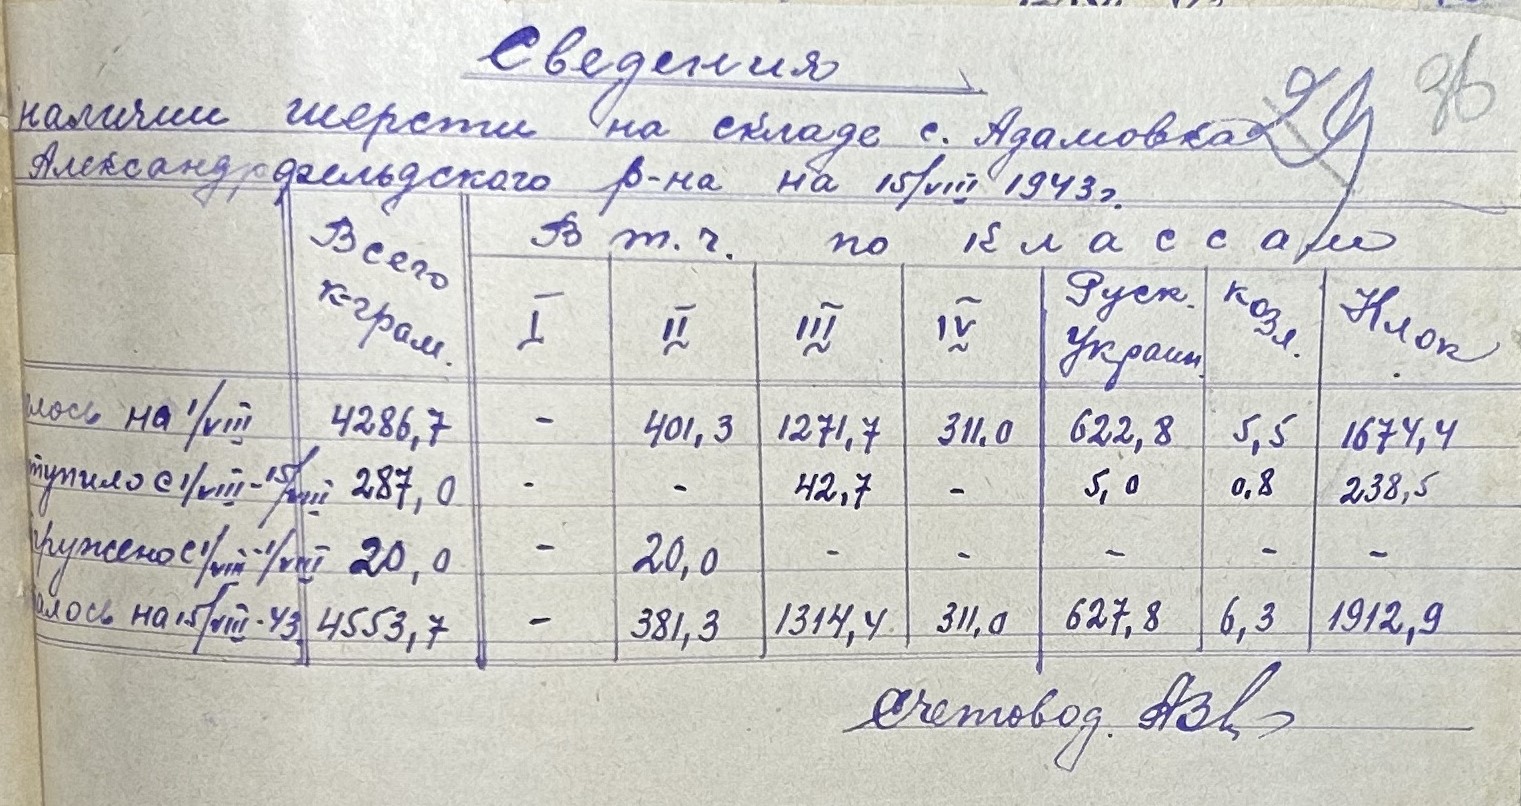 Сведения
наличии шерсти на складе с. Адамовка
Александрфельдского р-на на 15/VIII 1943г.
Всего к-грам. В т.ч. по классам
I II III IV Руск. Украин. козл. Клок
лось на 1/VIII 4286,7 - 401,3 1271,7 311,0 622,8 5,5 1674,4
тупило с 1/VIII-15/VIII 287,0 - - 42,7 - 5,0 0,8 238,5
гружено с 1/VIII-1/VIII 20,0 - 20,0 - - - - -
алось на 15/VIII-43 4553,7 - 381,3 1314,4 311,0 627,8 6,3 1912,9
Счетовод.